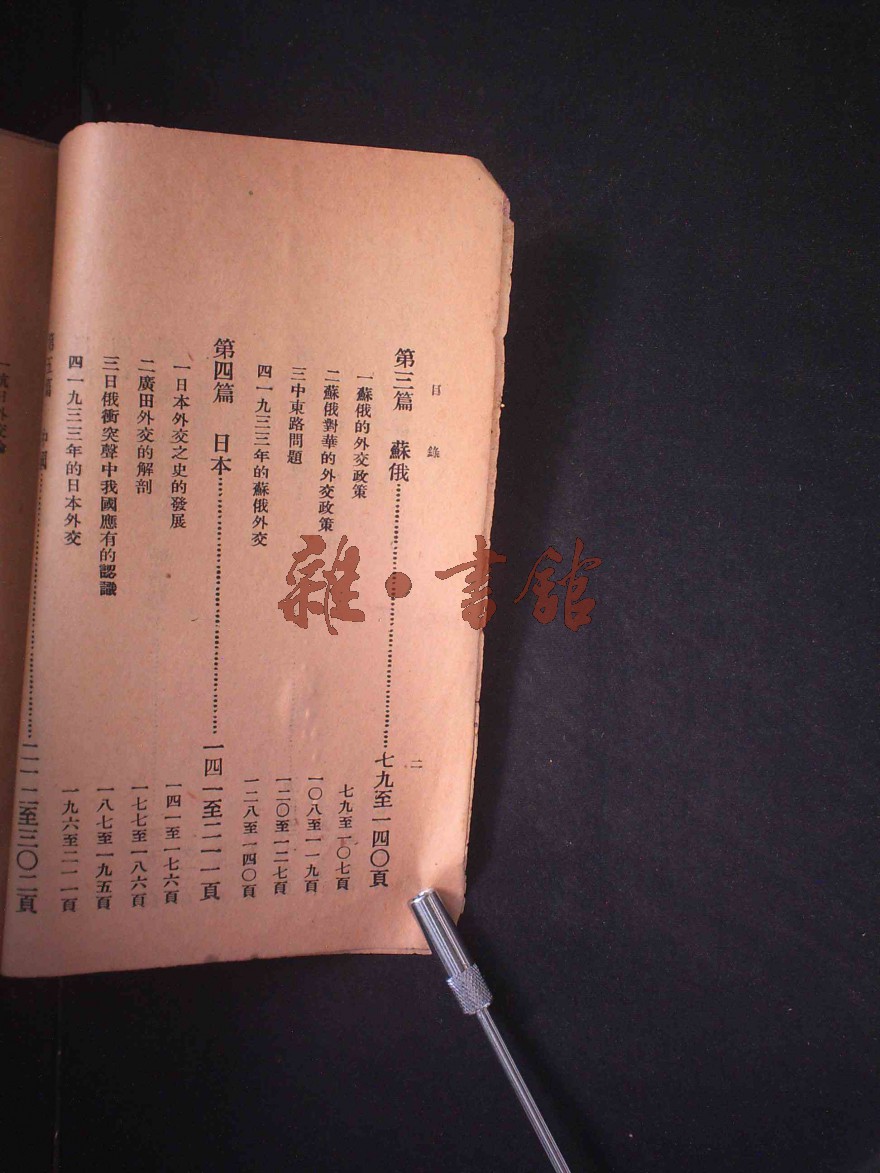 目錄
二
第三篇 蘇俄……七九至一四〇頁
一 蘇俄的外交政策 七九至一〇七頁
二 蘇俄對華的外交政策 一〇八至一一九頁
三 中東路問題 一二〇至一二七頁
四 一九三三年的蘇俄外交 一二八至一四〇頁
第四篇 日本……一四一至二一一頁
一 日本外交之史的發展 一四一至一七六頁
二 廣田外交的解剖 一七七至一八六頁
三 日俄衝突聲中我國應有的認識 一八七至一九五頁
四 一九三三年的日本外交 一九六至二一一頁
第五篇 中國……二一二至三〇二頁
雜·書館